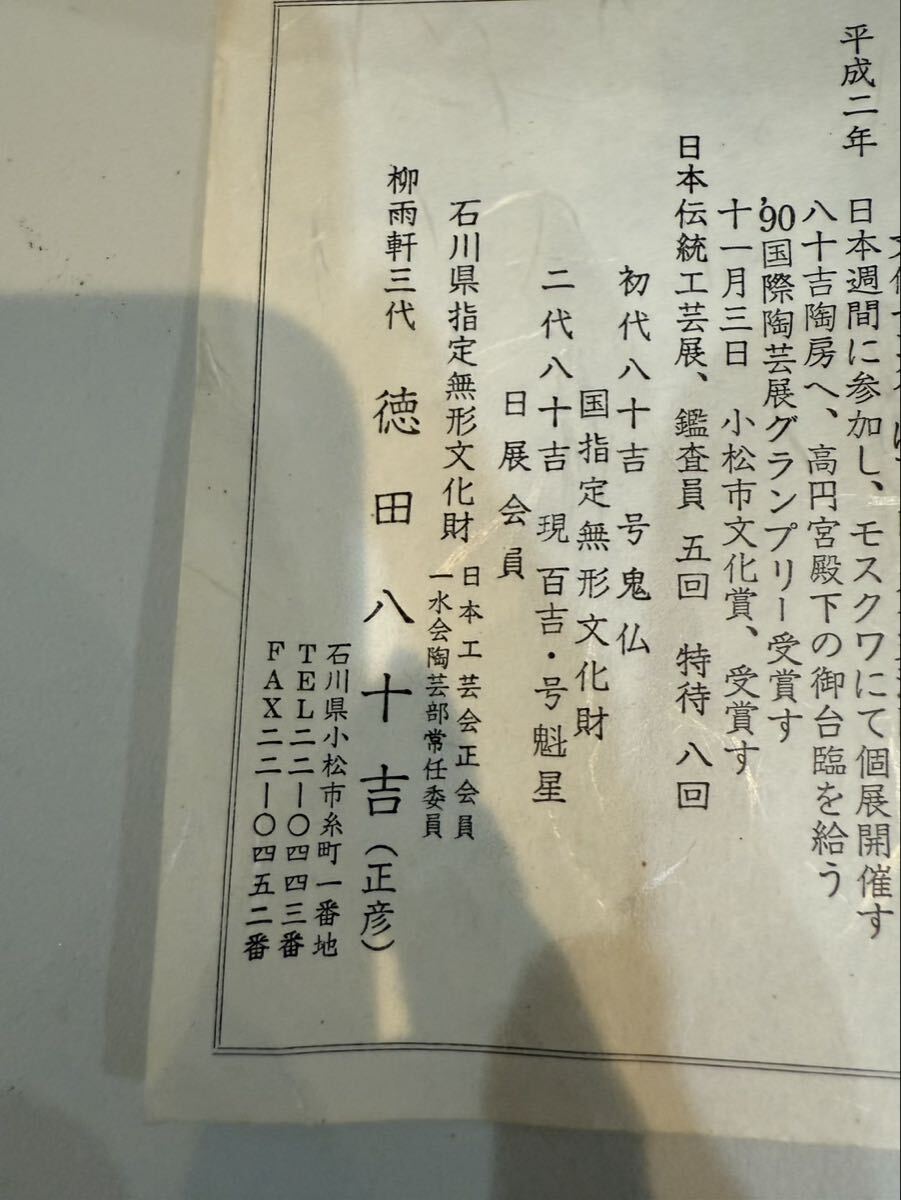 平成二年
日本週間に参加し、モスクワにて個展開催す
八十吉陶房へ、高円宮殿下の御台臨を給う
'90国際陶芸展グランプリー受賞す
十一月三日 小松市文化賞、受賞す
日本伝統工芸展、鑑査員 五回 特待 八回
初代八十吉 号鬼仏
国指定無形文化財
二代八十吉 現百吉・号魁星
日展会員
石川県指定無形文化財
日本工芸会正会員
一水会陶芸部常任委員
柳雨軒三代 徳田八十吉(正彦)
石川県小松市糸町一番地
TEL二二ー〇四四三番
FAX二二ー〇四五二番